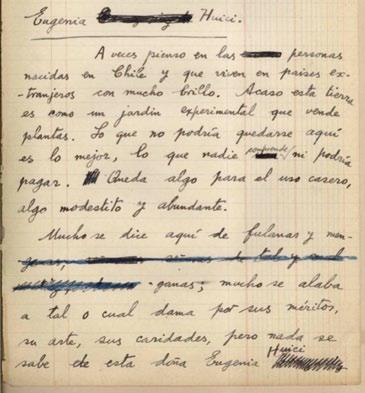 Eugenia Huici.
A veces pienso en las personas
nacidas en Chile y que viven en países ex-
-tranjeros con mucho brillo. Acaso esta tierra
es como un jardín experimental que vende
plantas. Lo que no podría quedarse aquí
es lo mejor, lo que nadie comprende ni podría
pagar. Queda algo para el uso casero,
algo modestito y abundante.
Mucho se dice aquí de fulanas y men-
-ganas; mucho se alaba
a tal o cual dama por sus méritos,
su arte, sus caridades, pero nada se
sabe de esta doña Eugenia Huici